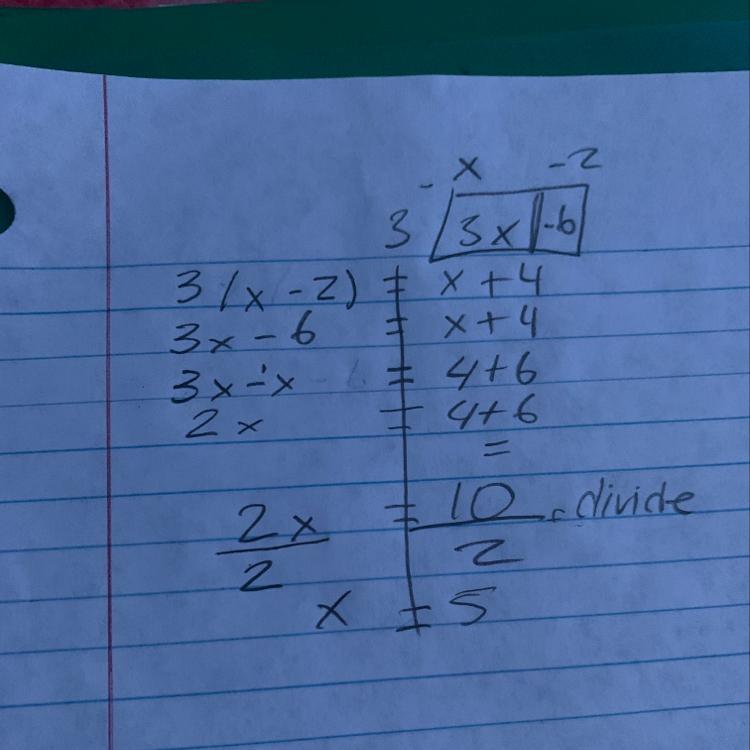 x -2
3 3x -6
3(x - 2) = x + 4
3x - 6 = x + 4
3x - x = 4+6
2x = 4+6
=
2x = 10 divide
2 2
x = 5